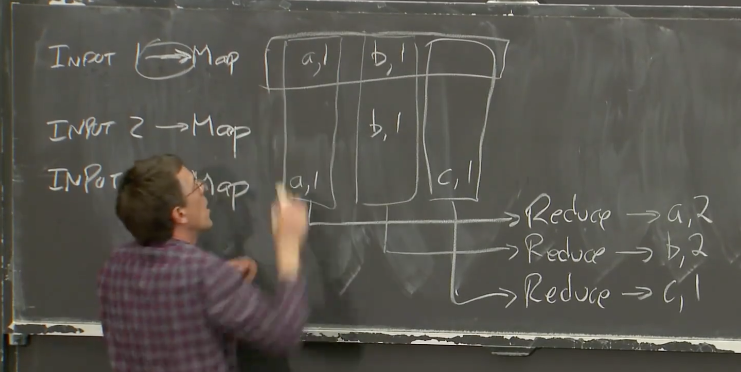 INPUT 1 → Map a,1 b,1
INPUT 2 → Map b,1
INPUT Map a,1 c,1
Reduce → a,2
Reduce → b,2
Reduce → c,1